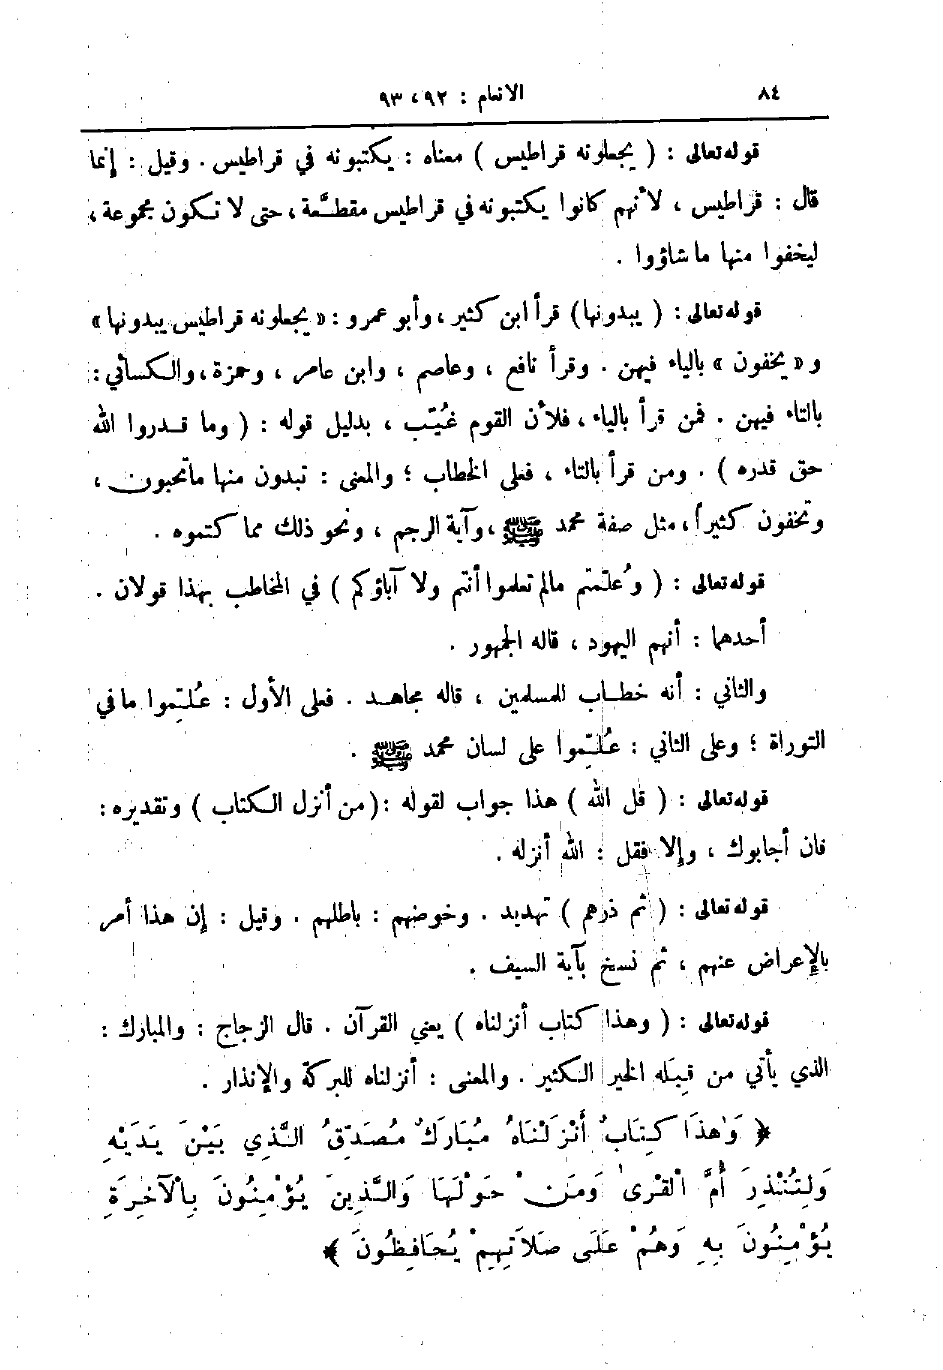 ٨٤ الانعام : ٩٢ ، ٩٣
قوله تعالى : ( يجعلونه قراطيس ) معناه : يكتبونه في قراطيس . وقيل : إنما
قال : قراطيس ، لأنهم كانوا يكتبونه في قراطيس مقطَّعة ، حتى لا تكون مجموعة ،
ليخفوا منها ما شاؤوا .
قوله تعالى : ( يبدونها ) قرأ ابن كثير ، وأبو عمرو : « يجعلونه قراطيس يبدونها »
و « يخفون » بالياء فيهن . وقرأ نافع ، وعاصم ، وابن عامر ، وحمزة ، والكسائي :
بالتاء فيهن . فمن قرأ بالياء ، فلأن القوم غُيَّب ، بدليل قوله : ( وما قدروا الله
حق قدره ) . ومن قرأ بالتاء ، فعلى الخطاب ؛ والمعنى : تبدون منها ما تحبون ،
وتخفون كثيراً ، مثل صفة محمد ﷺ ، وآية الرجم ، ونحو ذلك مما كتموه .
قوله تعالى : ( وعُلِّمتم مالم تعلموا أنتم ولا آباؤكم ) في المخاطب بهذا قولان .
أحدهما : أنهم اليهود ، قاله الجمهور .
والثاني : أنه خطاب للمسلمين ، قاله مجاهد . فعلى الأول : عُلِّموا ما في
التوراة ؛ وعلى الثاني : عُلِّموا على لسان محمد ﷺ .
قوله تعالى : ( قل الله ) هذا جواب لقوله : ( من أنزل الكتاب ) وتقديره :
فان أجابوك ، وإلا فقل : الله أنزله .
قوله تعالى : ( ثم ذرهم ) تهديد . وخوضهم : باطلهم . وقيل : إن هذا أمر
بالإعراض عنهم ، ثم نسخ بآية السيف .
قوله تعالى : ( وهذا كتاب أنزلناه ) يعني القرآن . قال الزجاج : والمبارك :
الذي يأتي من قِبَله الخير الكثير . والمعنى : أنزلناه للبركة والإنذار .
﴿ وَهٰذَا كِتَابٌ أَنْزَلْنَاهُ مُبَارَكٌ مُصَدِّقُ الَّذِي بَيْنَ يَدَيْهِ
وَلِتُنْذِرَ أُمَّ الْقُرىٰ وَمَنْ حَوْلَهَا وَالَّذِينَ يُؤْمِنُونَ بِالْآخِرَةِ
يُؤْمِنُونَ بِهِ وَهُمْ عَلَى صَلَاتِهِمْ يُحَافِظُونَ ﴾